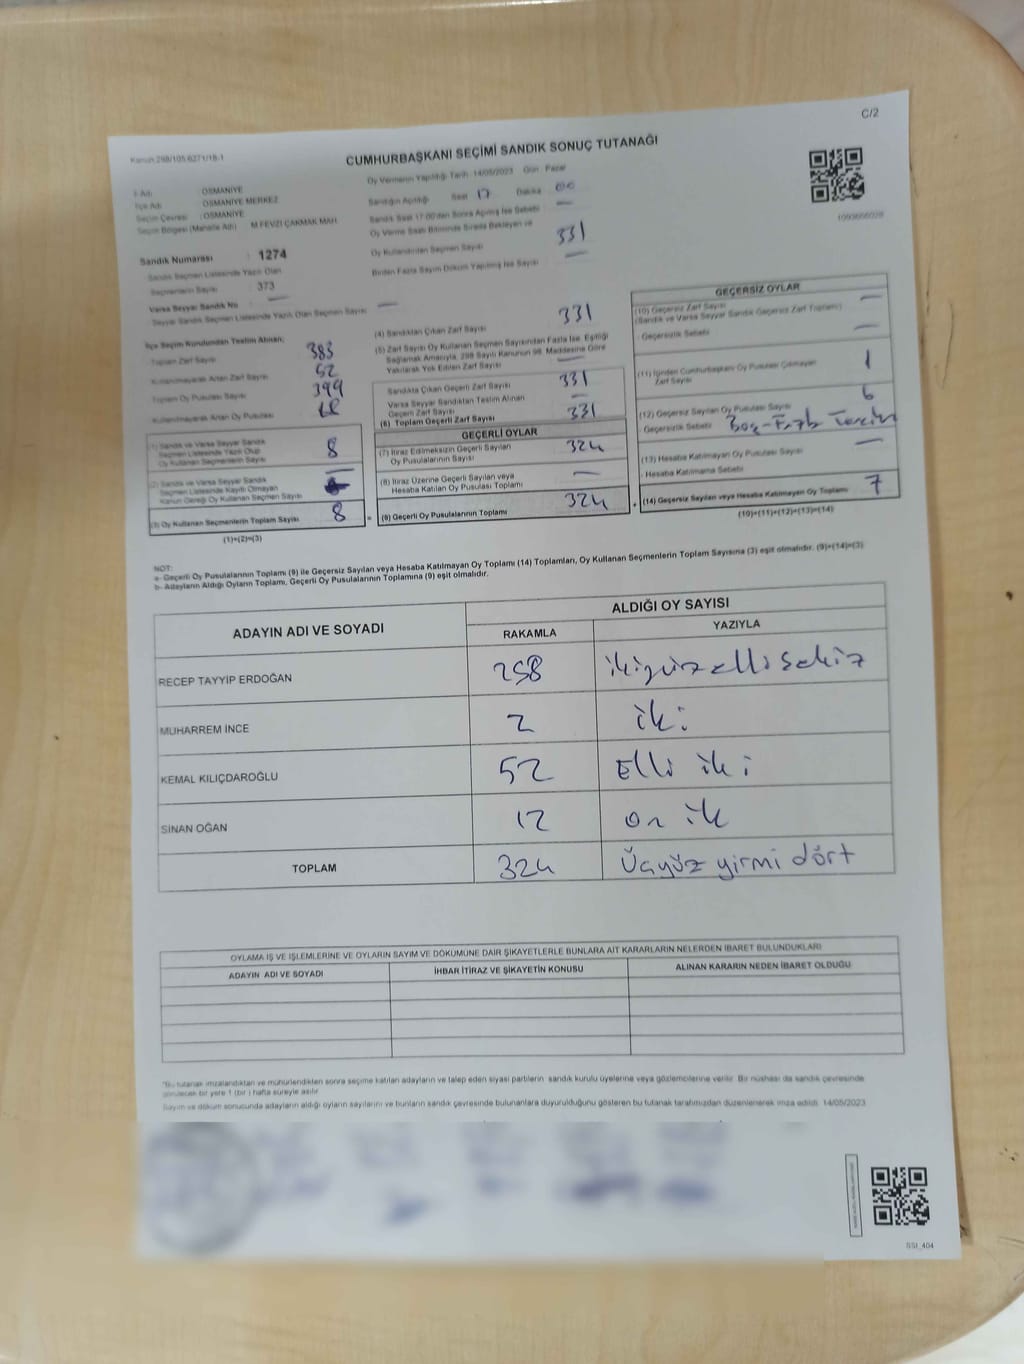 C/2
Kanun:298/105,6271/18-1
CUMHURBAŞKANI SEÇİMİ SANDIK SONUÇ TUTANAĞI
İl Adı : OSMANİYE
İlçe Adı : OSMANİYE MERKEZ
Seçim Çevresi : OSMANİYE
Seçim Bölgesi (Mahalle Adı) : M.FEVZİ ÇAKMAK MAH.
Oy Vermenin Yapıldığı Tarih: 14/05/2023 Gün: Pazar
Sandığın Açıldığı Saat 17 Dakika 00
Sandık Saat 17:00'dan Sonra Açılmış İse Sebebi —
Oy Verme Saati Bitiminde Sırada Bekleyen ve
Oy Kullandırılan Seçmen Sayısı 331
Birden Fazla Sayım Döküm Yapılmış İse Sayısı —
Sandık Numarası : 1274
Sandık Seçmen Listesinde Yazılı Olan
Seçmenlerin Sayısı : 373
Varsa Seyyar Sandık No —
Seyyar Sandık Seçmen Listesinde Yazılı Olan Seçmen Sayısı —
İlçe Seçim Kurulundan Teslim Alınan;
Toplam Zarf Sayısı 383
Kullanılmayarak Artan Zarf Sayısı 52
Toplam Oy Pusulası Sayısı 399
Kullanılmayarak Artan Oy Pusulası
(1) Sandık ve Varsa Seyyar Sandık
Seçmen Listesinde Yazılı Olup
Oy Kullanan Seçmenlerin Sayısı 8
(2) Sandık ve Varsa Seyyar Sandık
Seçmen Listesinde Kayıtlı Olmayan
Kanun Gereği Oy Kullanan Seçmen Sayısı
(3) Oy Kullanan Seçmenlerin Toplam Sayısı 8
(1)+(2)=(3)
(4) Sandıktan Çıkan Zarf Sayısı 331
(5) Zarf Sayısı Oy Kullanan Seçmen Sayısından Fazla İse, Eşitliği
Sağlamak Amacıyla, 298 Sayılı Kanunun 98. Maddesine Göre
Yakılarak Yok Edilen Zarf Sayısı —
Sandıkta Çıkan Geçerli Zarf Sayısı 331
Varsa Seyyar Sandıktan Teslim Alınan
Geçerli Zarf Sayısı —
(6) Toplam Geçerli Zarf Sayısı 331
GEÇERLİ OYLAR
(7) İtiraz Edilmeksizin Geçerli Sayılan
Oy Pusulalarının Sayısı 324
(8) İtiraz Üzerine Geçerli Sayılan veya
Hesaba Katılan Oy Pusulası Toplamı —
= (9) Geçerli Oy Pusulalarının Toplamı 324
GEÇERSİZ OYLAR
(10) Geçersiz Zarf Sayısı —
(Sandık ve Varsa Seyyar Sandık Geçersiz Zarf Toplamı)
- Geçersizlik Sebebi —
(11) İçinden Cumhurbaşkanı Oy Pusulası Çıkmayan
Zarf Sayısı 1
(12) Geçersiz Sayılan Oy Pusulası Sayısı 6
- Geçersizlik Sebebi Boş-Fazla Tercih
(13) Hesaba Katılmayan Oy Pusulası Sayısı —
- Hesaba Katılmama Sebebi
+ (14) Geçersiz Sayılan veya Hesaba Katılmayan Oy Toplamı 7
(10)+(11)+(12)+(13)=(14)
NOT:
a- Geçerli Oy Pusulalarının Toplamı (9) ile Geçersiz Sayılan veya Hesaba Katılmayan Oy Toplamı (14) Toplamları, Oy Kullanan Seçmenlerin Toplam Sayısına (3) eşit olmalıdır. (9)+(14)=(3)
b- Adayların Aldığı Oyların Toplamı, Geçerli Oy Pusulalarının Toplamına (9) eşit olmalıdır.
ADAYIN ADI VE SOYADI ALDIĞI OY SAYISI
RAKAMLA YAZIYLA
RECEP TAYYİP ERDOĞAN 258 ikiyüzellisekiz
MUHARREM İNCE 2 iki
KEMAL KILIÇDAROĞLU 52 Elli iki
SİNAN OĞAN 12 on ik
TOPLAM 324 Üçyüz yirmi dört
OYLAMA İŞ VE İŞLEMLERİNE VE OYLARIN SAYIM VE DÖKÜMÜNE DAİR ŞİKAYETLERLE BUNLARA AİT KARARLARIN NELERDEN İBARET BULUNDUKLARI
ADAYIN ADI VE SOYADI İHBAR İTİRAZ VE ŞİKAYETİN KONUSU ALINAN KARARIN NEDEN İBARET OLDUĞU
*Bu tutanak imzalandıktan ve mühürlendikten sonra seçime katılan adayların ve talep eden siyasi partilerin sandık kurulu üyelerine veya gözlemcilerine verilir. Bir nüshası da sandık çevresinde
görülecek bir yere 1 (bir) hafta süreyle asılır.
Sayım ve döküm sonucunda adayların aldığı oyların sayılarını ve bunların sandık çevresinde bulunanlara duyurulduğunu gösteren bu tutanak tarafımızdan düzenlenerek imza edildi. 14/05/2023
SSI_404